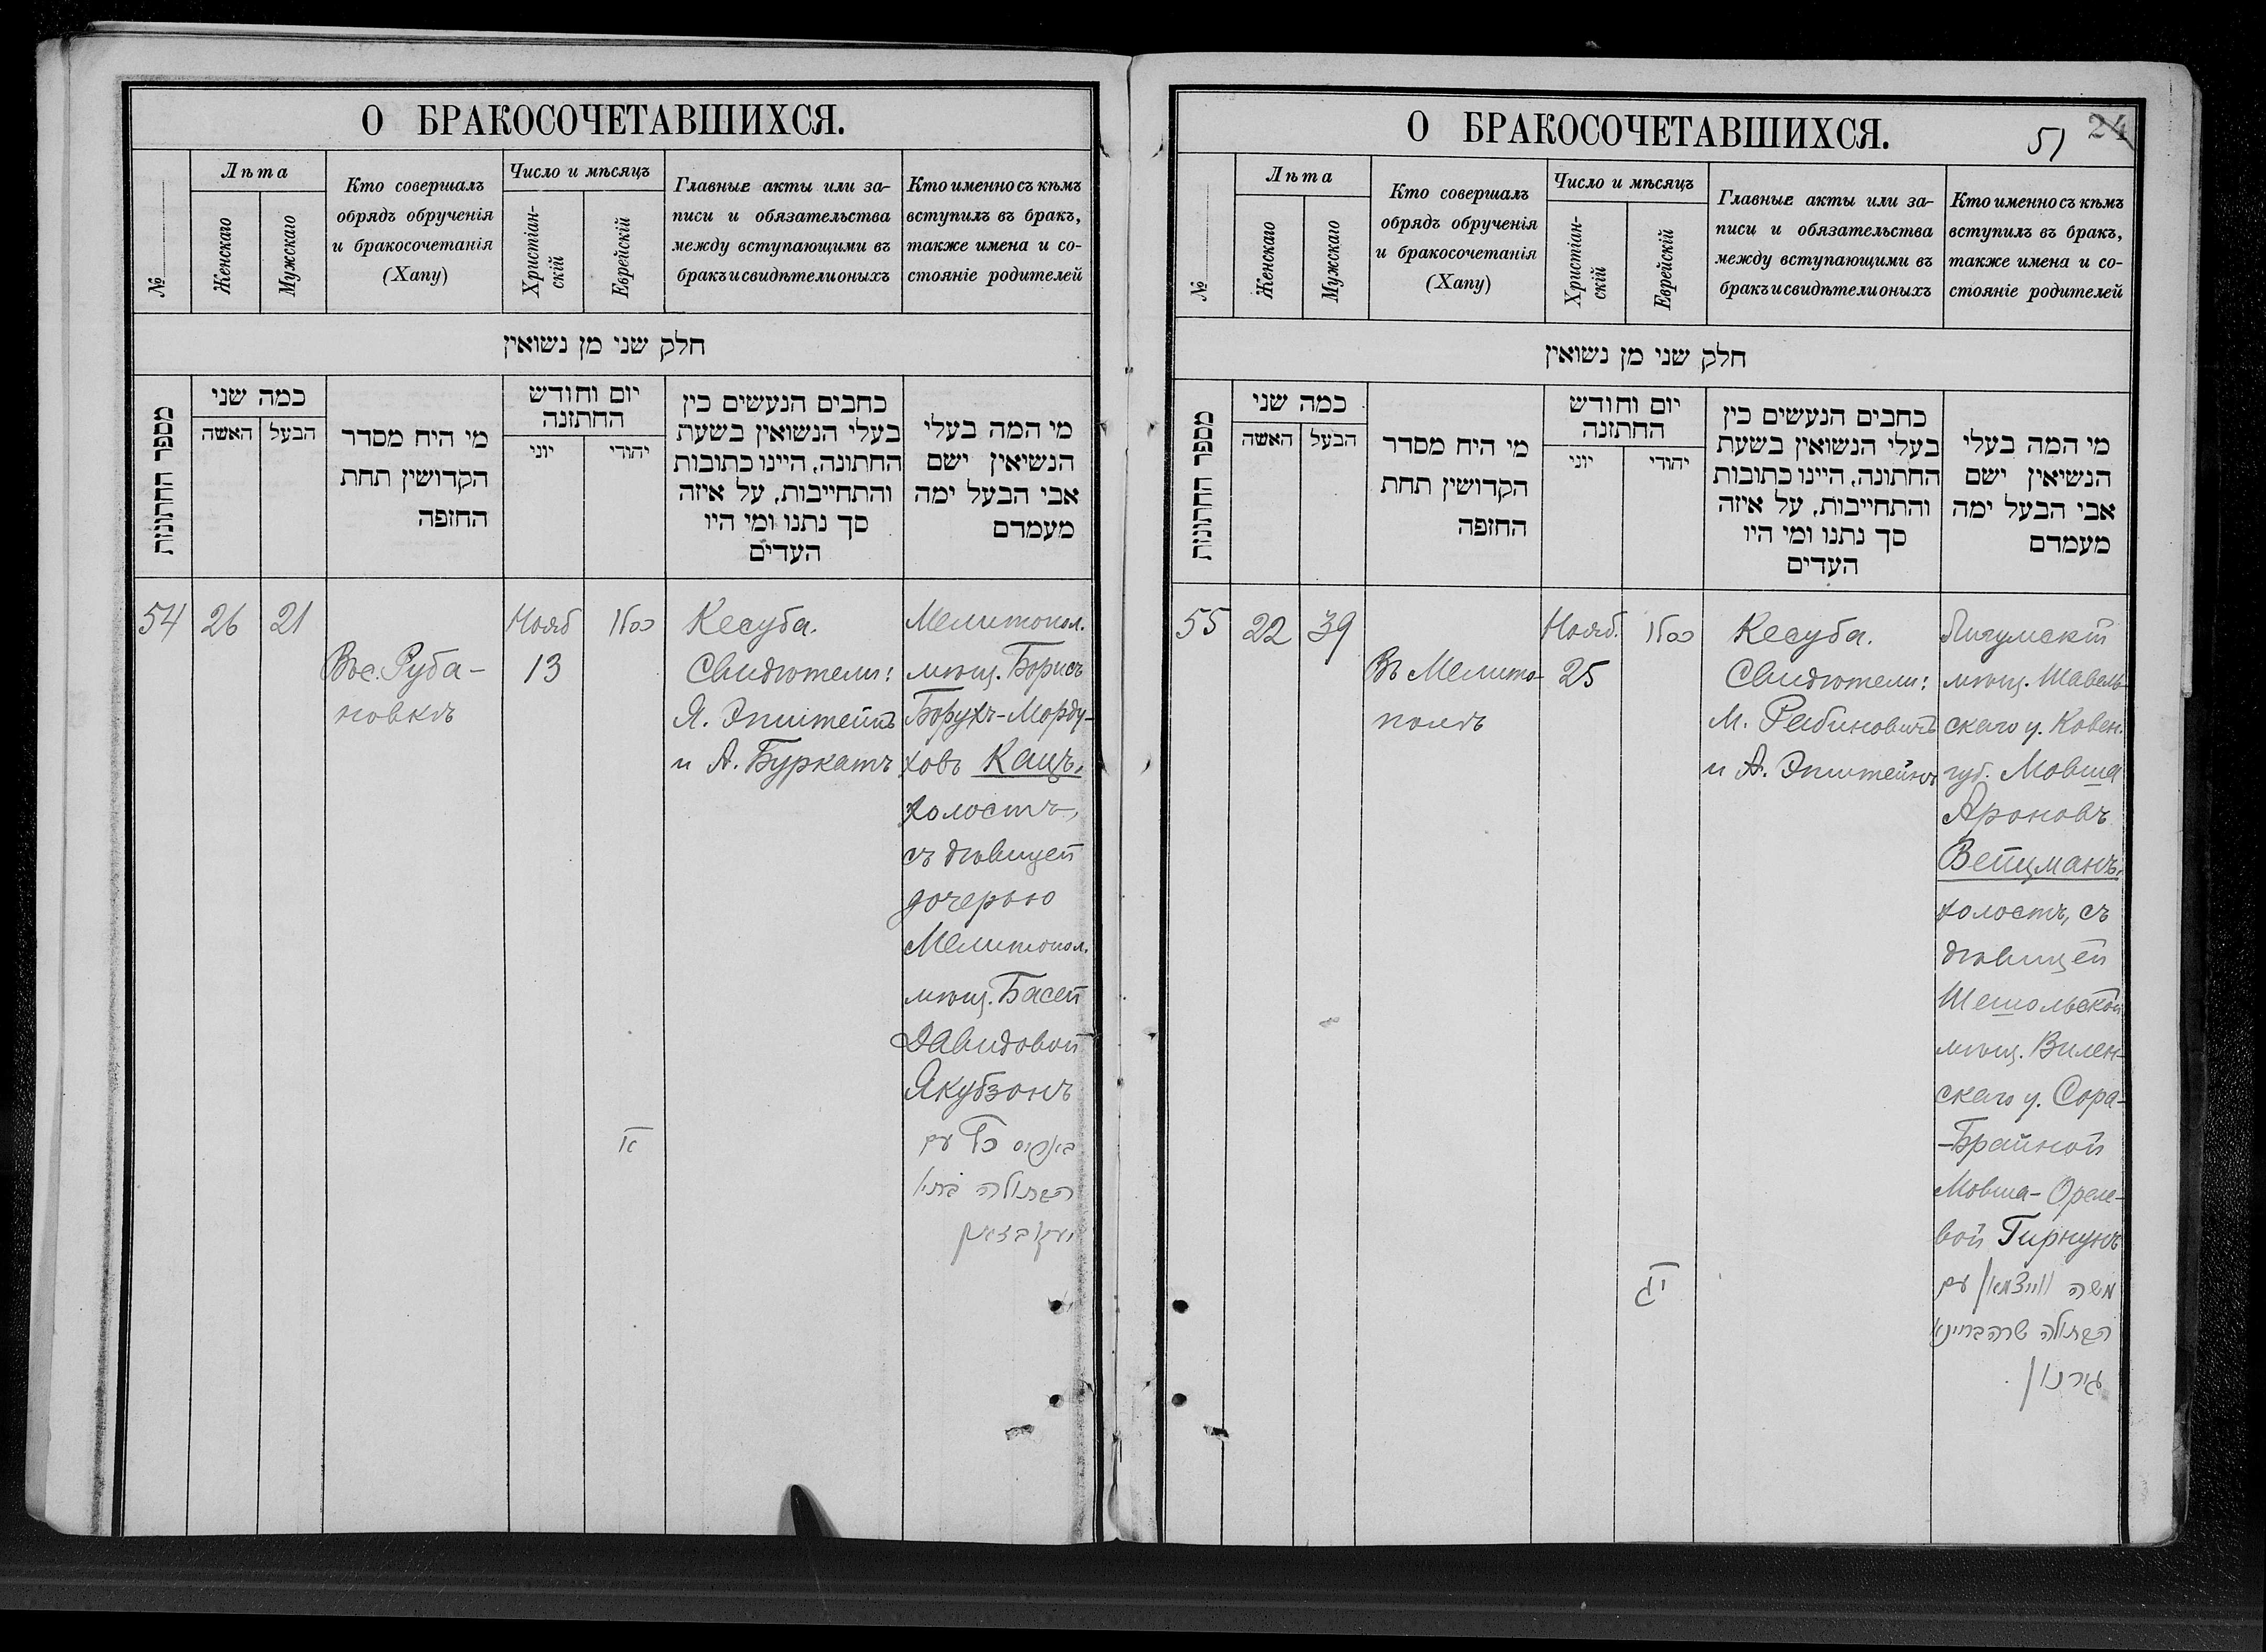 О БРАКОСОЧЕТАВШИХСЯ.
№
Лѣта
Женскаго
Мужскаго
Кто совершалъ
обрядъ обрученія
и бракосочетанія
(Хапу)
Число и мѣсяцъ
Христіан-
скій
Еврейскій
Главные акты или за-
писи и обязательства
между вступающими въ
бракъ и свидѣтели оныхъ
Кто именно съ кѣмъ
вступилъ въ бракъ,
также имена и со-
стояніе родителей
חלק שני מן נשואין
מספר החתונות
כמה שני
האשה
הבעל
מי היח מסדר
הקדושין תחת
החזפה
יום וחודש
החתזנה
יוני
יהודי
כחבים הנעשים כין
בעלי הנשואין בשעת
החתונה, היינו כתובות
והתחייבות, על איזה
סך נתנו ומי היו
העדים
מי המה בעלי
הנשיאין ישם
אבי הבעל ימה
מעמדם
54
26
21
Въ с. Руба-
новкѣ
Нояб
13
כסלו
יא
Кесуба.
Свидѣтели:
Я. Эпштейнъ
и А. Буркатъ
Мелитопол.
мѣщ. Борисъ
Борухъ-Морду-
ховъ Кацъ,
холостъ,
съ дѣвицей
дочерью
Мелитопол.
мѣщ. Басей
Давидовой
Якубзонъ
כץ עם
הבתולה
О БРАКОСОЧЕТАВШИХСЯ.
51
24
№
Лѣта
Женскаго
Мужскаго
Кто совершалъ
обрядъ обрученія
и бракосочетанія
(Хапу)
Число и мѣсяцъ
Христіан-
скій
Еврейскій
Главные акты или за-
писи и обязательства
между вступающими въ
бракъ и свидѣтели оныхъ
Кто именно съ кѣмъ
вступилъ въ бракъ,
также имена и со-
стояніе родителей
חלק שני מן נשואין
מספר החתונות
כמה שני
האשה
הבעל
מי היח מסדר
הקדושין תחת
החזפה
יום וחודש
החתזנה
יוני
יהודי
כחבים הנעשים כין
בעלי הנשואין בשעת
החתונה, היינו כתובות
והתחייבות, על איזה
סך נתנו ומי היו
העדים
מי המה בעלי
הנשיאין ישם
אבי הבעל ימה
מעמדם
55
22
39
Въ Мелито-
полѣ
Нояб.
25
כסלו
יג
Кесуба.
Свидѣтели:
М. Рабиновичъ
и А. Эпштейнъ
Лигумскій
мѣщ. Шавель-
скаго у. Ковен.
губ. Мовша
Ароновъ
Вейцманъ,
холостъ, съ
дѣвицей
Шешольской
мѣщ. Вилен-
скаго у. Сора-
-Брайной
Мовша-Ореле-
вой Гирнунъ
משה ווייצמאן עם
הבתולה שרה בריינא
גירנון